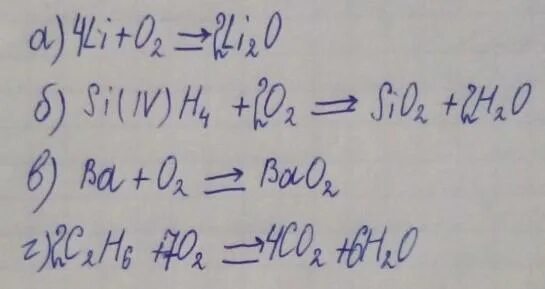 а) 4Li + O₂ ⇒ 2Li₂O
б) Si(IV)H₄ + 2O₂ ⇒ SiO₂ + 2H₂O
в) Ba + O₂ ⇒ BaO₂
г) 2C₂H₆ + 7O₂ ⇒ 4CO₂ + 6H₂O